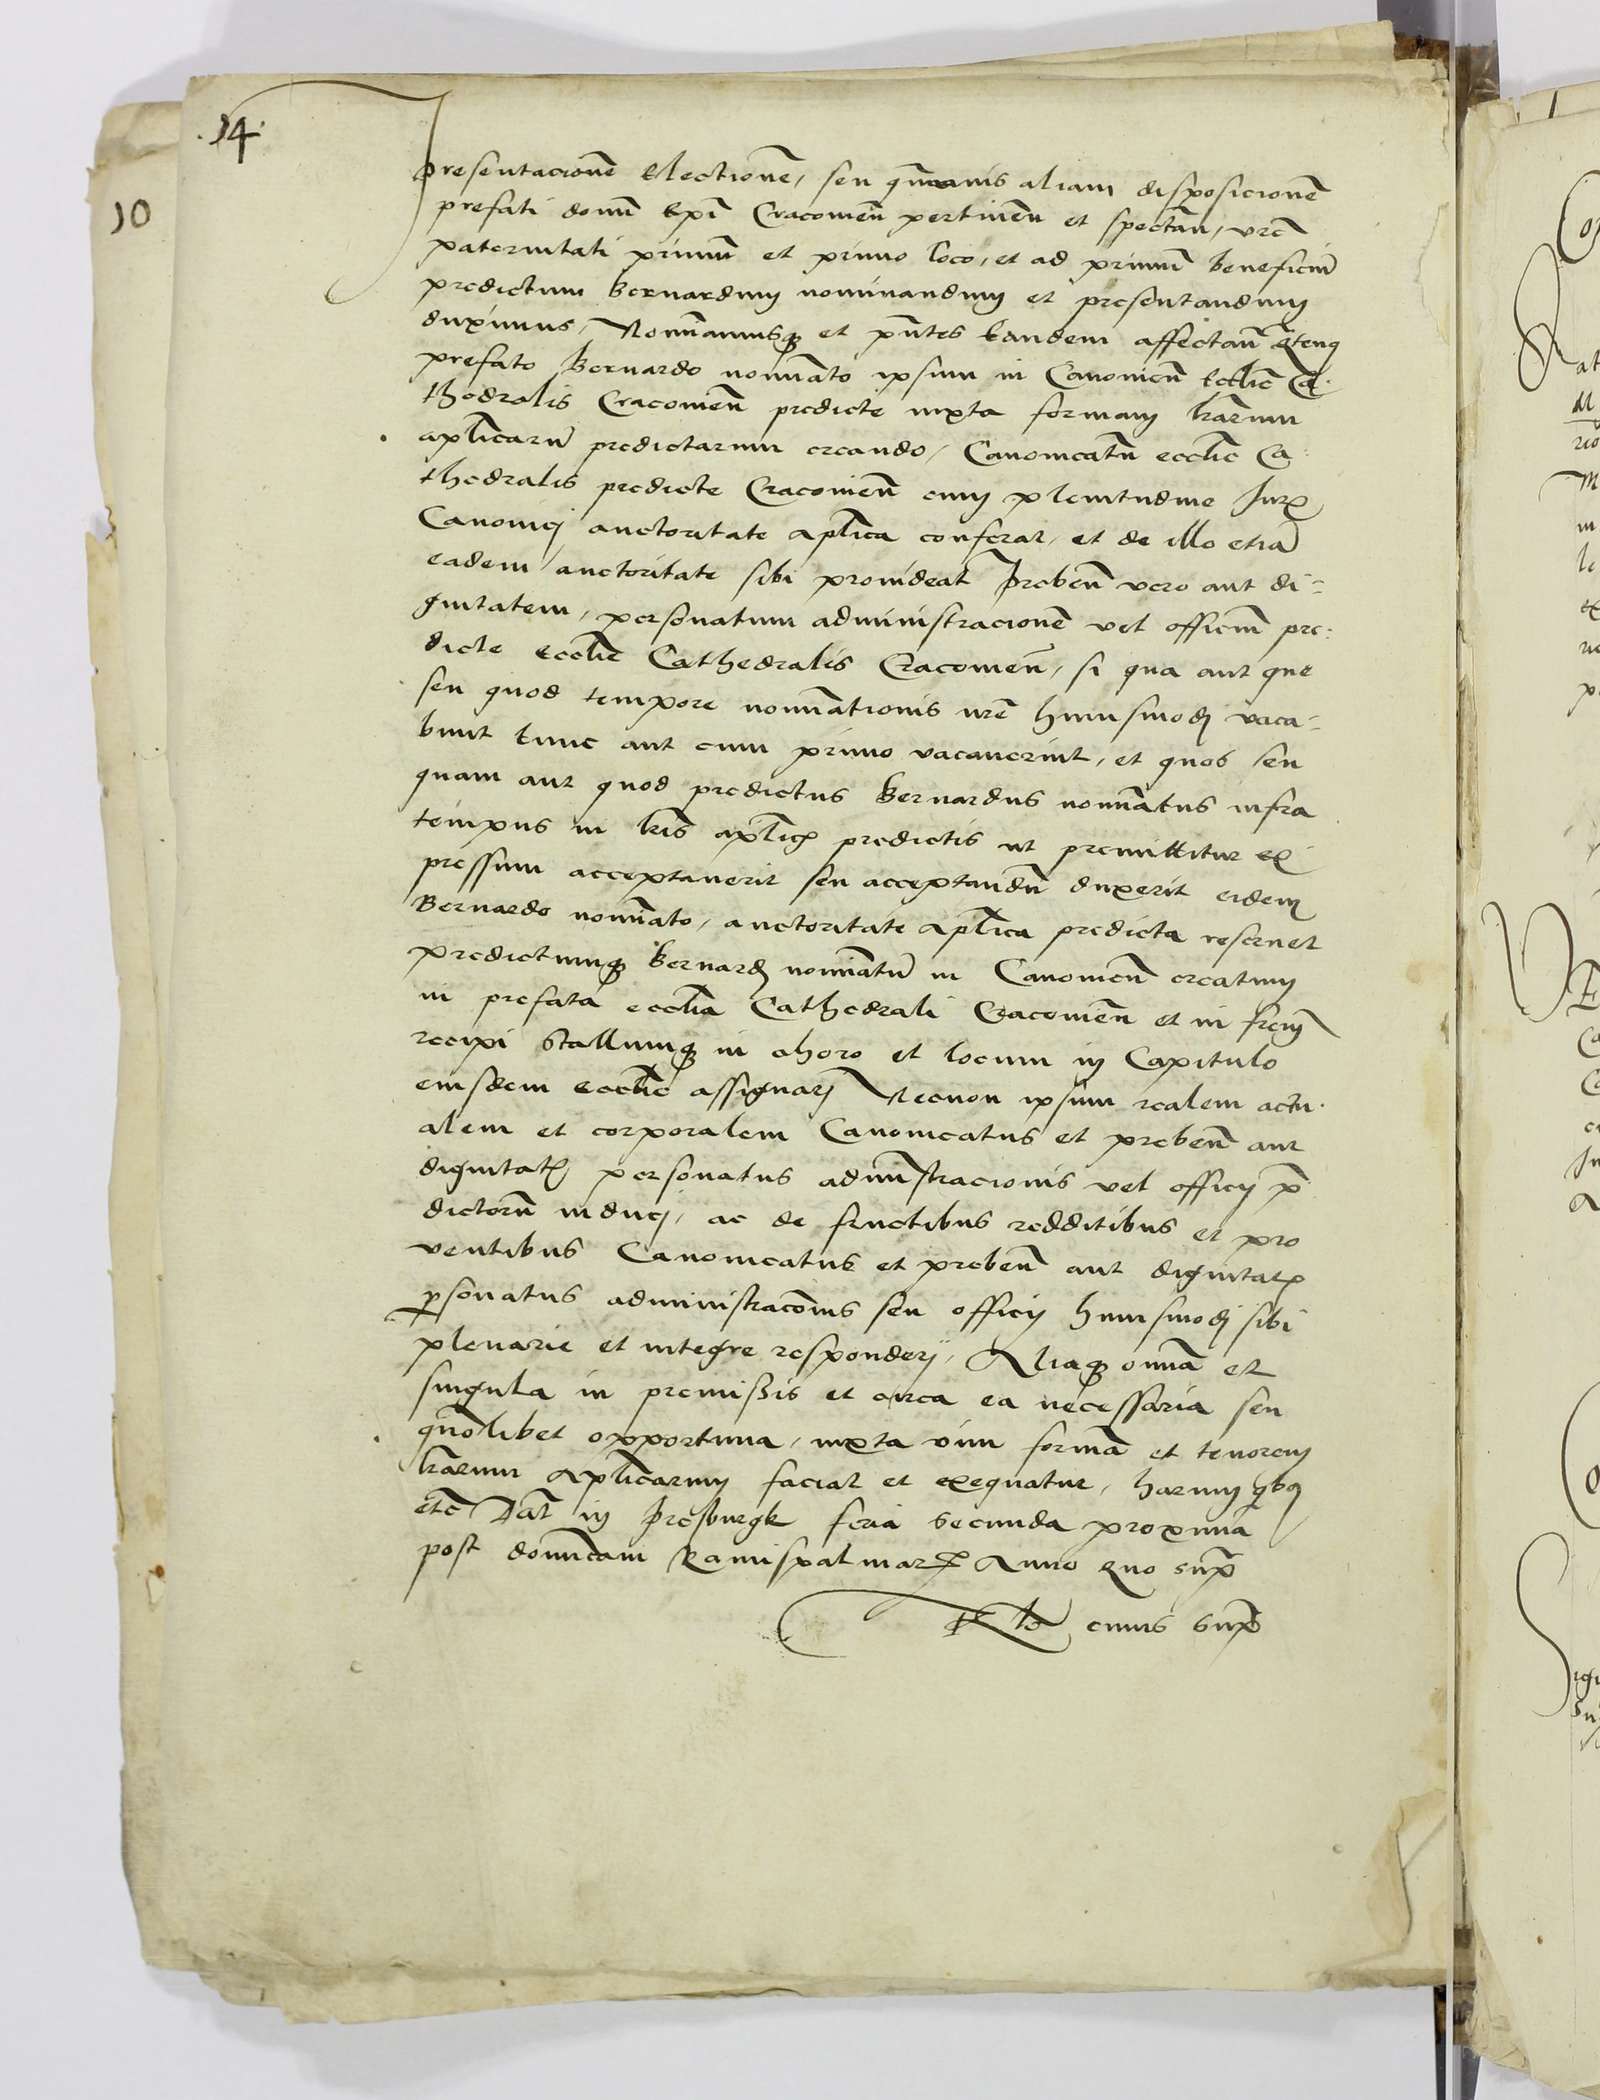 .14.
10
presentacionē Electionē, seu quāvis aliam disposicionē
prefati domī Epī Cracovieñ pertineñ et spectañ, vrē
paternitati primū et primo loco, et ad primū beneficiū
predictum Bernardum nominandum et presentandum
duximus, Nomīamusq et pñtes eandem affectañ q̄tenq
prefato Bernardo nomīato ipsum in Canonicū Ecclīe Ca
thedralis Cracovieñ predicte iuxta formam lrārum
aplīcarū predictarum creando, Canonicatū ecclīe Ca
thedralis predicte Cracovieñ cum plenitudine Juris
Canonici auctoritate aplīca conferat, et de illo etiā
eadem auctoritate sibi provideat Prebeñ vero aut di=
gnitatem, personatum administracionē vel officiū pre:
dicte Ecclīe Cathedralis Cracovieñ, si qua aut que
seu quod tempore nomīationis nrē huiusmodi vaca=
bunt tunc aut cum primo vacaverint, et quos seu
quam aut quod predictus Bernardus nomīatus infra
tempus in lrīs aplīcis predictis ut premittitur ex
pressum acceptaverit seu acceptandū duxerit eidem
Bernardo nomīato, auctoritate aplīca predicta reservet
predictumq Bernardū nomīatū in Canonicū creatum
in prefata ecclīa Cathedrali Cracovieñ et in frēm
recipi Stallumq in choro et locum in Capitulo
eiusdem Ecclīe assignari Necnon ipsum realem actu
alem et corporalem Canonicatus et prebeñ aut
dignitatis personatus adminīstracionis vel officij p̄
dictorū induci, ac de fructibus redditibus et pro
ventibus Canonicatus et prebeñ aut dignitatis
personatus administracōnis seu officij huiusmodi sibi
plenarie et integre responderi, Aliaq omnīa et
singula in premissis et circa ea necessaria seu
quōlibet opportuna, iuxta vim formā et tenorem
lrārum Aplīcarum faciat et exequatur, harum qibq
etc̄ Dat̄ in Presburgk feria Secunda proxima
post domīcam Ramispalmarum Anno quo supra
Rlō cuius supra